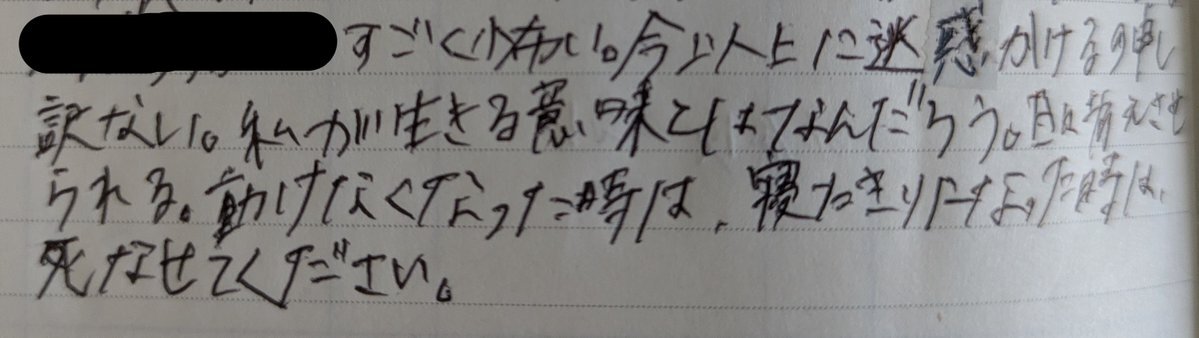 すごく怖い。今以上に迷惑かける申し
訳ない。私が生きる意味とはなんだろう。日々考えさせ
られる。動けなくなった時は、寝たきりになった時は、
死なせてください。